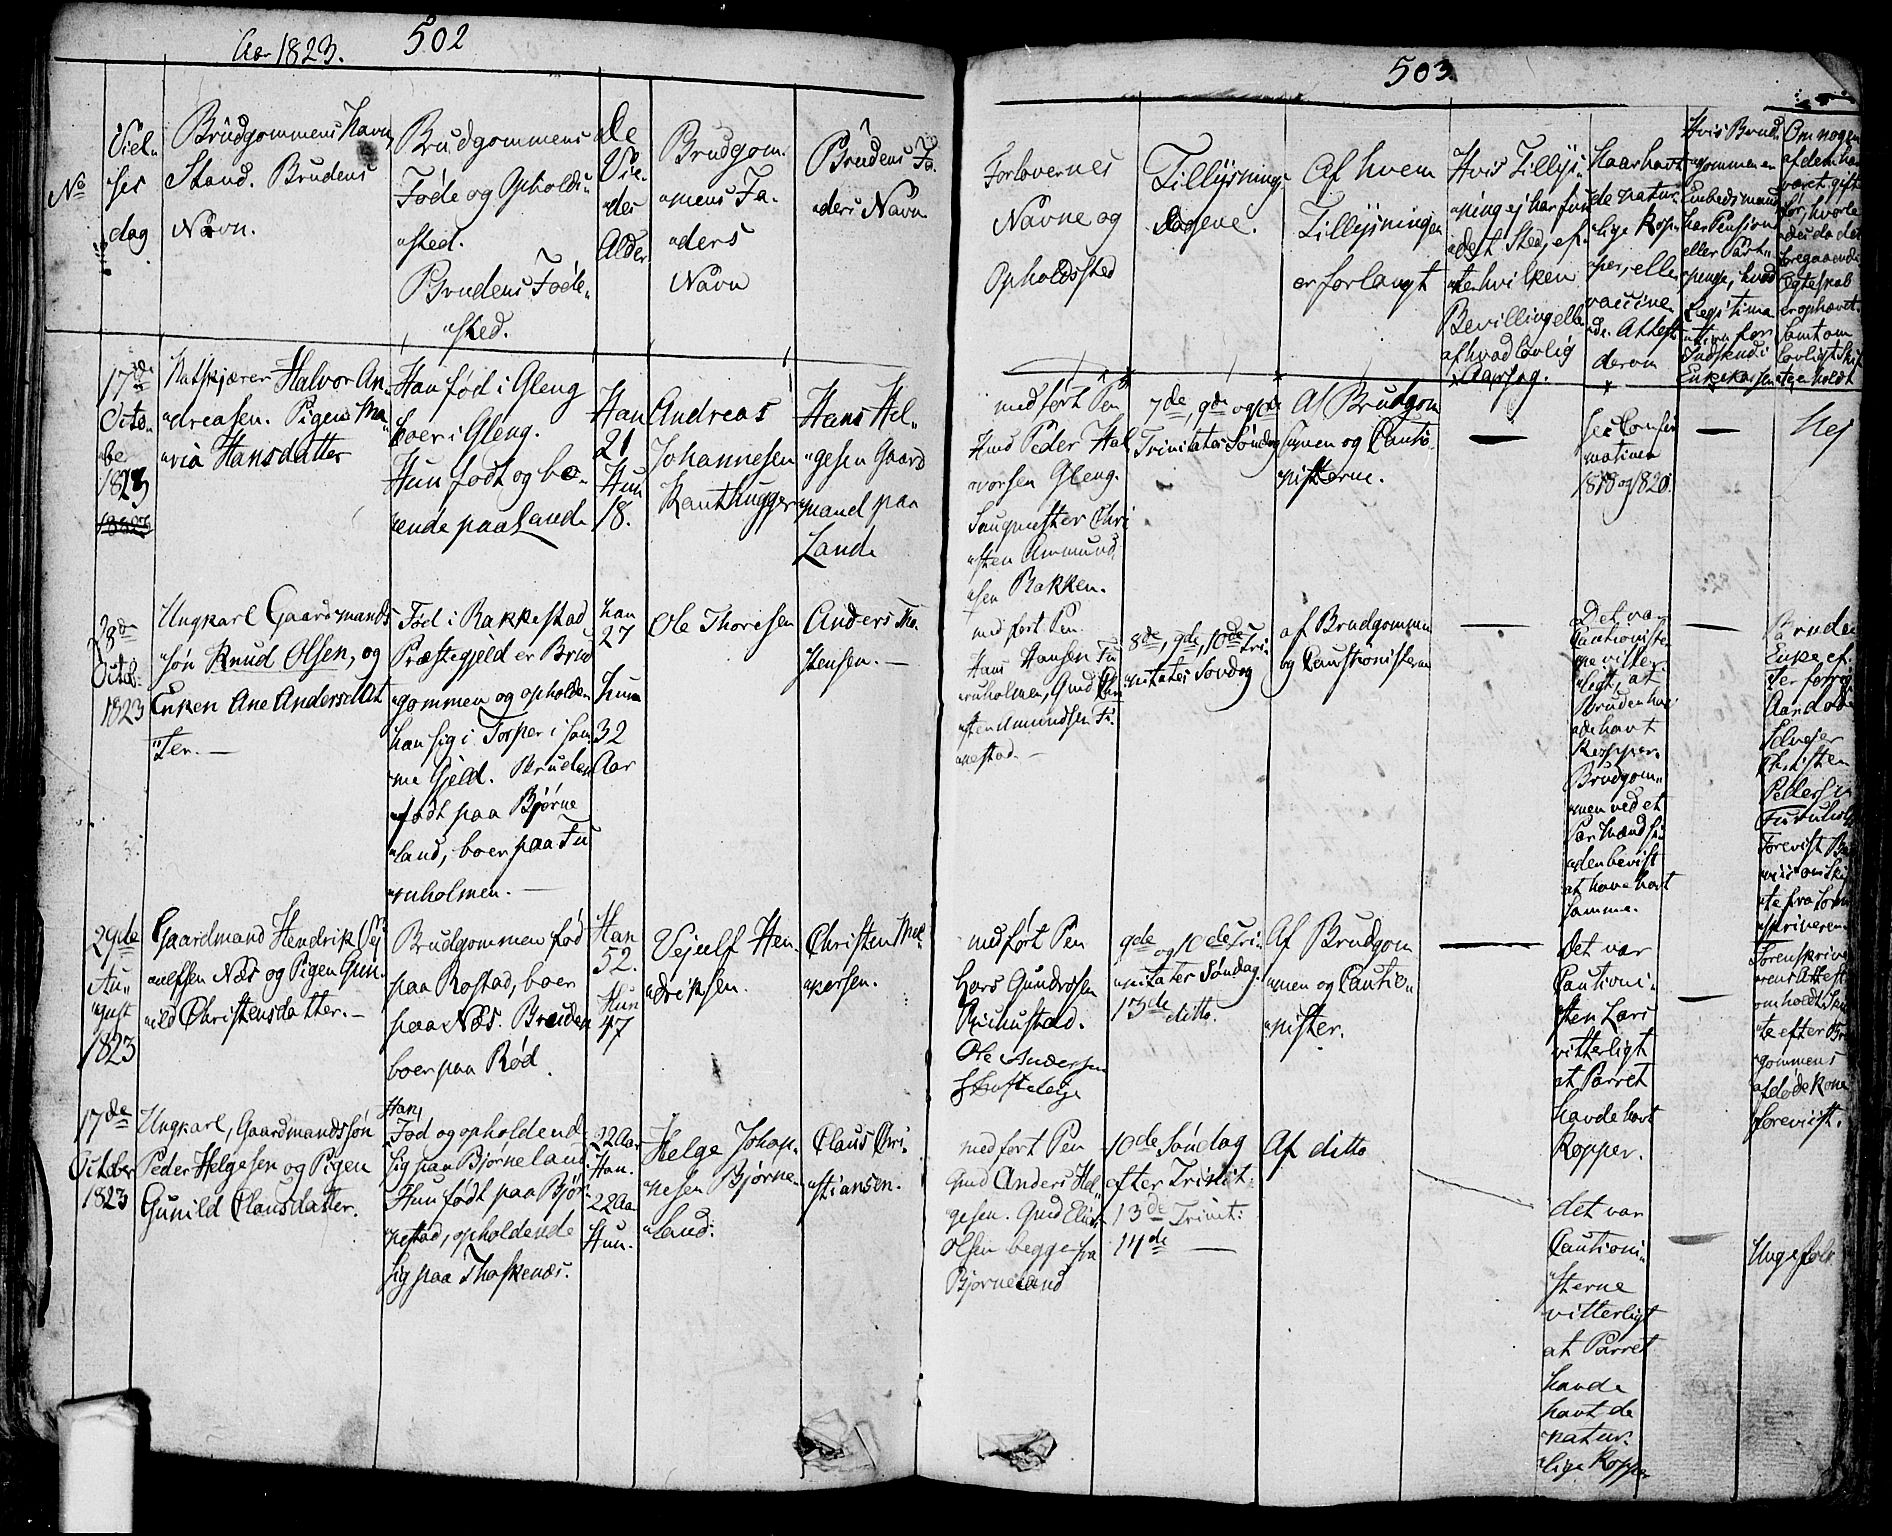 Aar 1823.
502
No
Viel-
ses
dag
Brudgommens Navn,
Stand. Brudens
Navn.
Brudgommens
Føde og Opholds-
"sted.
Brudens Føde-
"sted.
De
Vie-
"des
Alder
Brudgom-
"mens Fa-
"ders
Navn
Brudens Fa-
"ders Navn
17de
Octo-
be
1823
Halvor An-
"dreasen. Pigen Ma-
"ria Hansdatter
Han fød i Gleng
boer i Gleng.
Hun født og bo-
ende paa Lande
Han
21
Hun
18.
Andreas
Johannesen
Hans Hel-
"gesen Gaard
"mand paa
Lande
28de
Octob.
1823
Ungkarl Gaardmands
søn Knud Olsen, og
Enken Ane Andersdat
"ter. —
Fød i Rakkestad
Præstegjeld er Brud
"gommen og opholder
han sig i Torper i sam
me Gjeld. Bruden
født paa Bjørne
"land, boer paa Fu
"ruholmen. —
han
27
hun
32
Aar
Ole Thoresen
Anders Tho-
stensen. —
29de
Au-
"gust
1823
Gaardmand Hendrik Vej
"ulfsen Næs og Pigen Gun-
"ild Christensdatter. —
Brudgommen fød
paa Rostad, boer
paa Næs. Bruden
boer paa Rød.
Han
52.
Hun
47
Vejulf Hen-
"driksen.
Christen
17de
October
1823
Ungkarl, Gaardmandssøn
Peder Helgesen og Pigen
Gunild Clausdatter.
Han
Fød og opholdend
sig paa Bjørneland
Hun født paa Bjør
nestad, opholdende
sig paa Thoskenæs.
22 Aar
Han.
22 Aa
Hun.
Helge Johan-
"nesen Bjørne-
"land.
Claus Chri-
"stiansen.
503.
Forlovernes
Navne og
Opholdssted
Tillysnings
dagene.
Af hvem
Tillysningen
er forlangt
Hvis Tillys-
"ning ej har fun
"det Sted, ef-
"ter hvilken
Bevilling elle
af hvad lovlig
Aarsag.
Haar havt
de natur-
"lige Kop-
"per, elle
vaccine
"de. Attest
derom
Hvis Brud-
"gommen er
Embedsmand
har Pension
eller Vart-
"penge, hvad
Legitima
"tion for
Indskud i
Enkekassen
Om nogen
af dem har
været gift
før, hvorle
"des da det
foregaaende
Ægteskab
er ophævet.
Samt om
lovligt Skif
"te holdt
med ført Pen
Gmd Peder Hal
vorsen Gleng.
Saugmester Chri
"sten Ammund
"sen Bakken.
7de, 9de og 10de
Trinitatis Søndag
Af Brudgom
"men og Cautio
"nisterne.
—
See Confir
mationen
1818 og 1820.
—
Nej
med ført Pen
Hans Hansen Fu
"ruholmen, Gmd Chri
"sten Amundsen Fu-
"nestad. —
8de, 9de, 10de Tri-
"nitatis Søndag
af Brudgommen
og Cautionisterne
—
Det var
Cautioniste
"ne vitter-
"ligt, at
Bruden hav-
"de havt
Kopper.
Brudgom-
"men ved et
Par Mænd si
"den bevist
at have havt
samme.
—
Bruden
Enke ef-
ter forrige
Selvejer
Christen
Pedersen
Furuhol
Forevist
"te fra Soren
"skriveren.
med ført Pen
Hars Gundersen
Ole Andersen
9de og 10de Tri-
"nitatis Søndag.
13de ditto.
Af Brudgom
"men og Cautio-
"nister.
—
Det var
Cautioni-
"sten Lars
vitterligt
at Parret
havde havt
Kopper.
—
Sorenskrive
"rens Attest
om holdt Skif
"te efter Brud
"gommens
afdøde Kone
forevist.
med ført Pen
Gmd Anders Hel-
"gesen. Gmd
Olsen begge fra
Bjørneland
10de Søndag
efter Trinit:
13de Trinit:
14de —
Af ditto
det var
Cautioni-
"sterne
vitterligt
at Parret
havde
havt de
natur-
"lige Kopper
—
Ungefolk